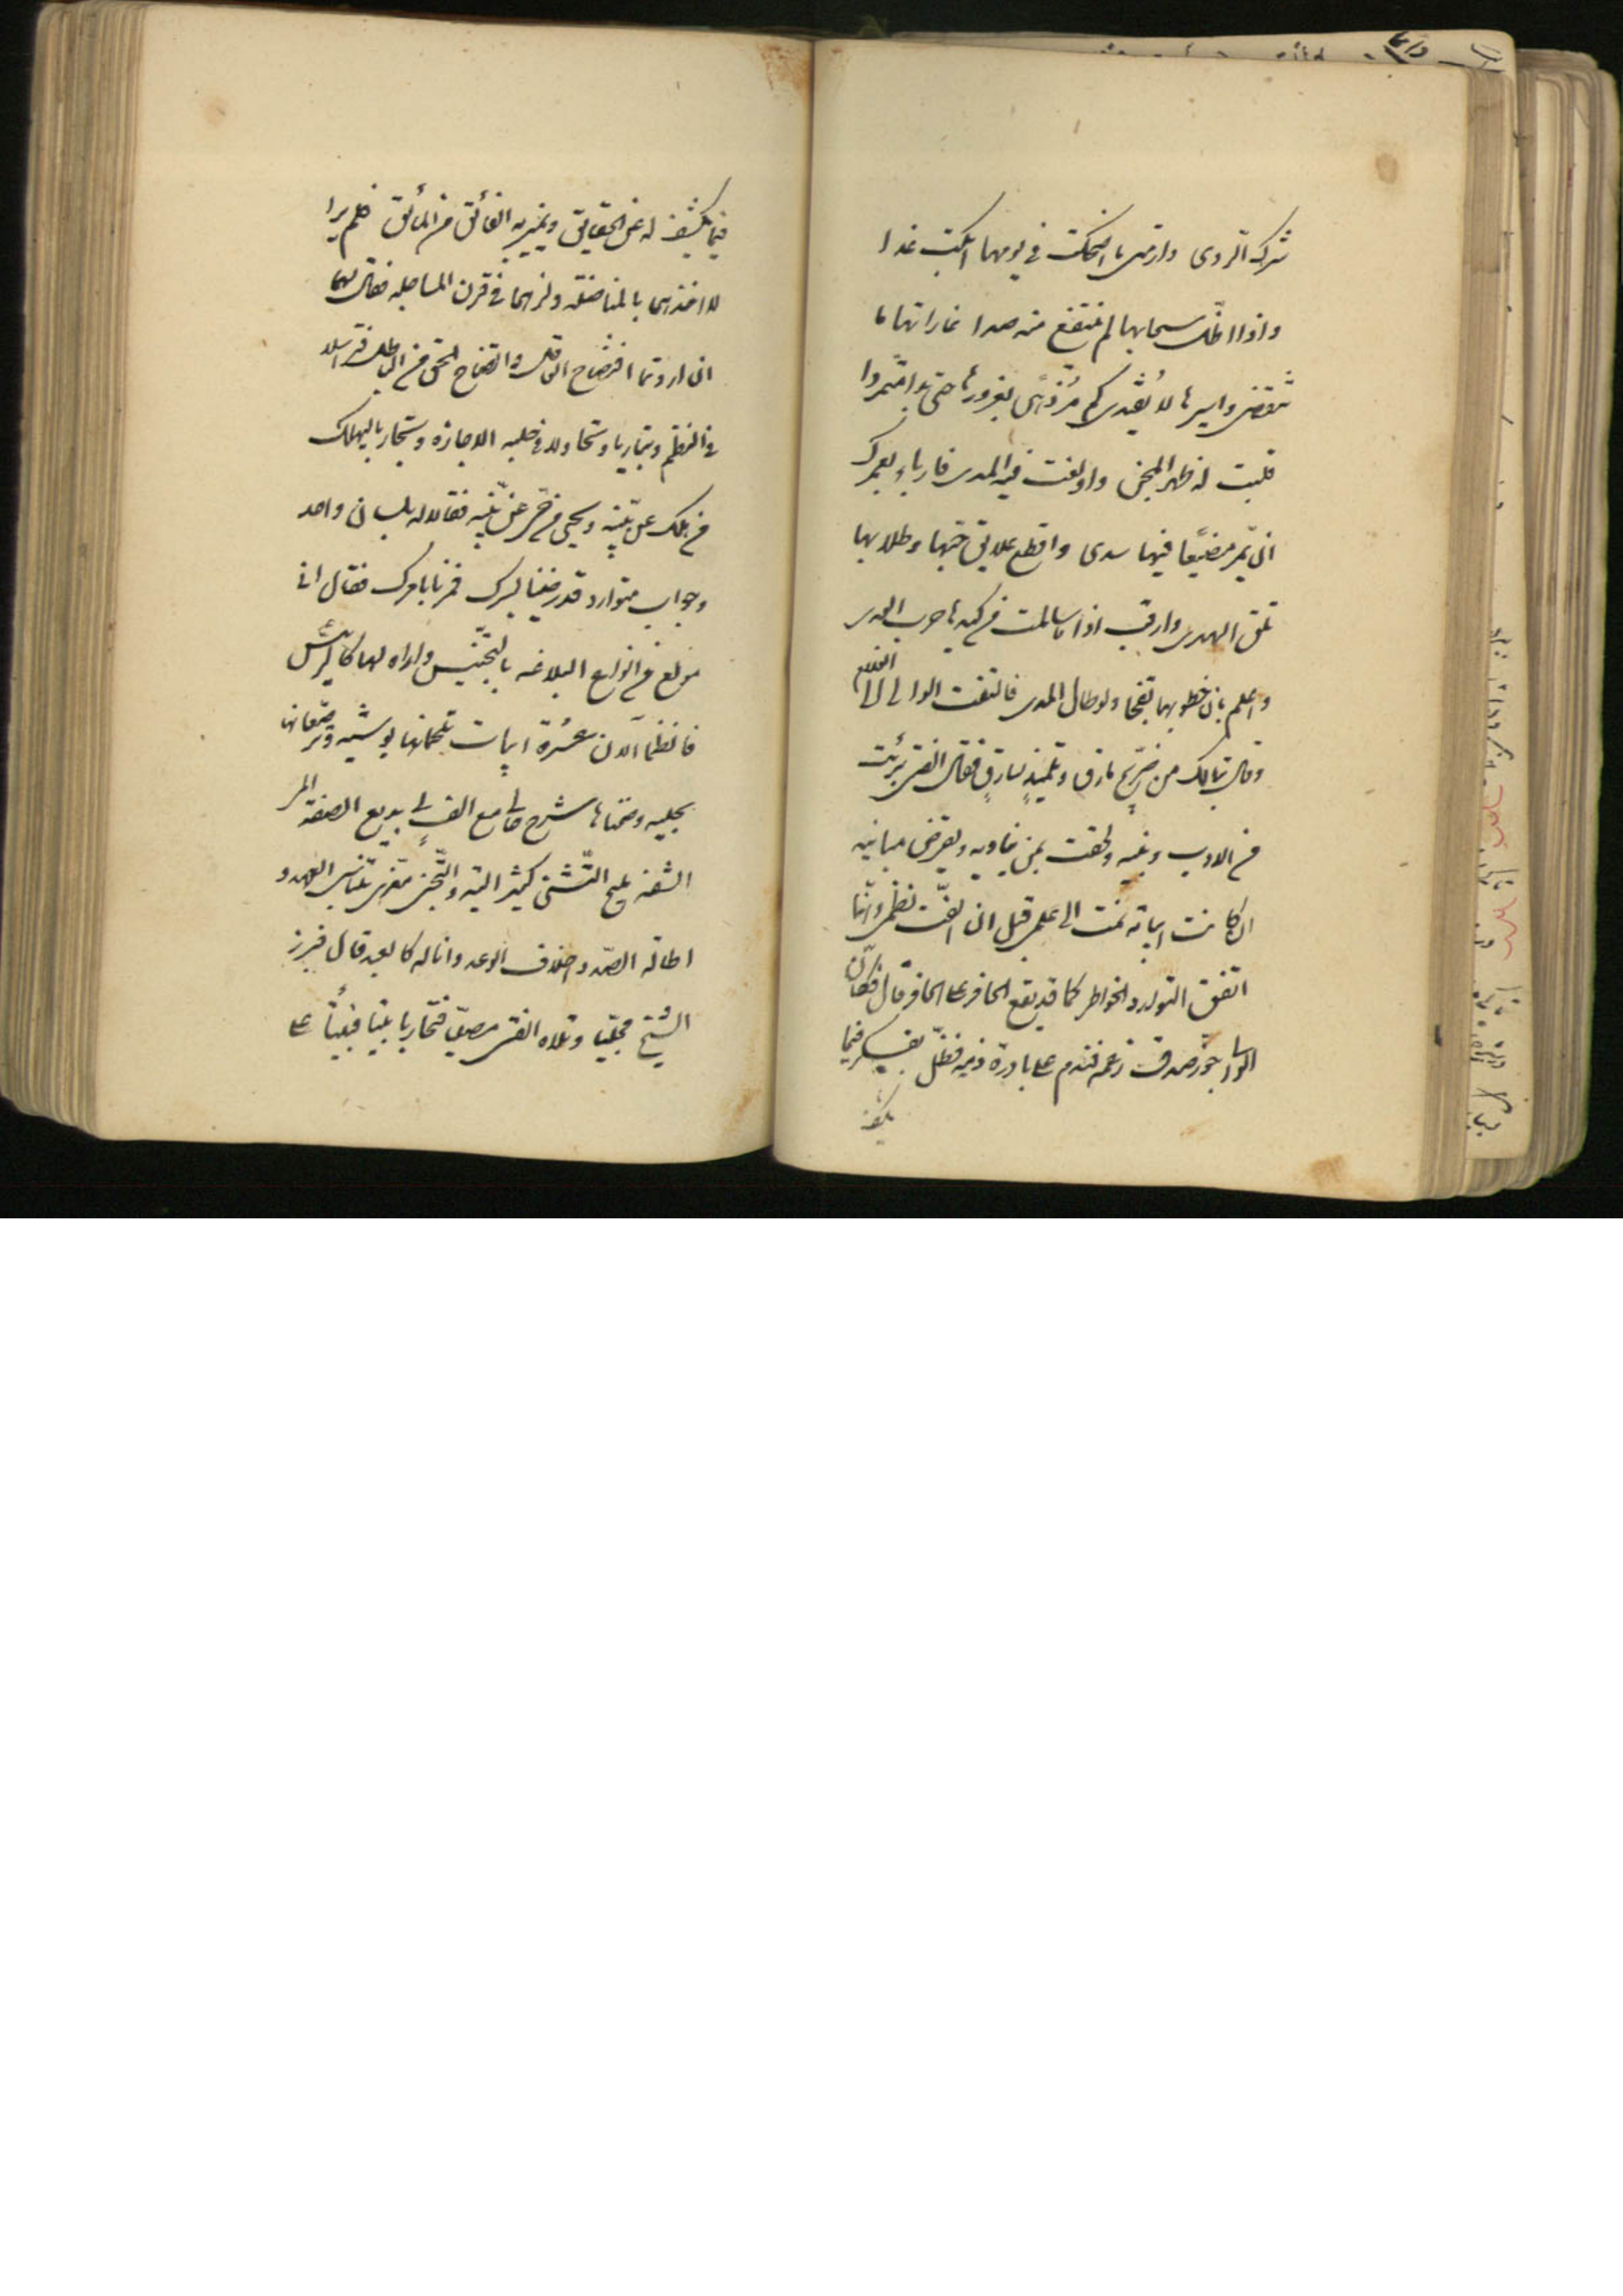 شرك الردى دار متى ما اضحكت في يومها ابكت غدا
واذا اظل سحابها لم ينتقع منه صدا غاراتها ما
تنقضي واسيرها لا يفتدى كم مزدهى بغرورها حتى بدا متمردا
قلبت له ظهر المجن واولغت فيه المدى فاربا بعمرك
ان يمر مضيعا فيها سدى واقطع علايق حبها وطلابها
تلق الهدى وارقب اذا ما سالمت من كيدها حرب العدى
واعلم بان خطوبها تفجا ولو طال المدى فالتفت الوالي الى الغلام
وقال تبا لك من خريج مارق وتلميذ سارق فقال الفتى برئت
من الادب وبنيه ولحقت بمن يناويه ويقوض مبانيه
ان كانت ابياته نمت الى علمي قبل ان الفت نظمي وانما
اتفق التوارد الخواطر كما قد يقع الحافر على الحافر قال فكان
الوالي جوز صدق زعمه فندم على بادرة ذمه فظل يفكر فيما
يكشف
فيما يكشف له عن الحقايق ويميز به الفائق من المائق فلم ير ا
لا اخذهما بالمناضلة ولزهما في قرن المساجلة فقال لهما
ان اردتما افتضاح العاطل واتضاح الحق من الباطل فتراسلا
في النظم وتباريا وتجاولا في حلبة الاجازة وتجاريا ليهلك
من هلك عن بينة ويحيى من حي عن بينة فقالا له بلسان واحد
وجواب متوارد قد رضينا بسبرك فمرنا بامرك فقال اني
مولع من انواع البلاغة بالتجنيس واراه لها كالرئيس
فانظما الان عشرة ابيات تلحمانها بوشيه وترصعانها
بحليه وضمناها شرح حالي مع الف لي بديع الصفة المى
الشفة مليح التثني كثير التيه والتجني مغرى بتناسي العهد و
اطالة الصد واخلاف الوعد وانا له كالعبد قال فبرز
الشيخ مجليا وتلاه الفتى مصليا فتجاريا بيتا فبيتا على